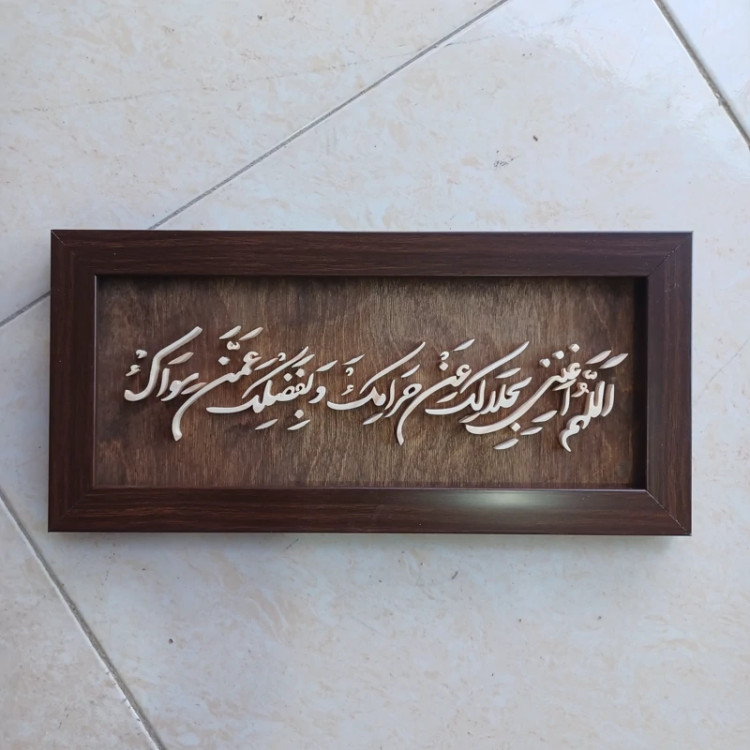 اَللّٰهُمَّ اَغْنِنِی بِحَلَالِکَ عَنْ حَرَامِکَ وَ بِفَضْلِکَ عَمَّنْ سِوَاکَ